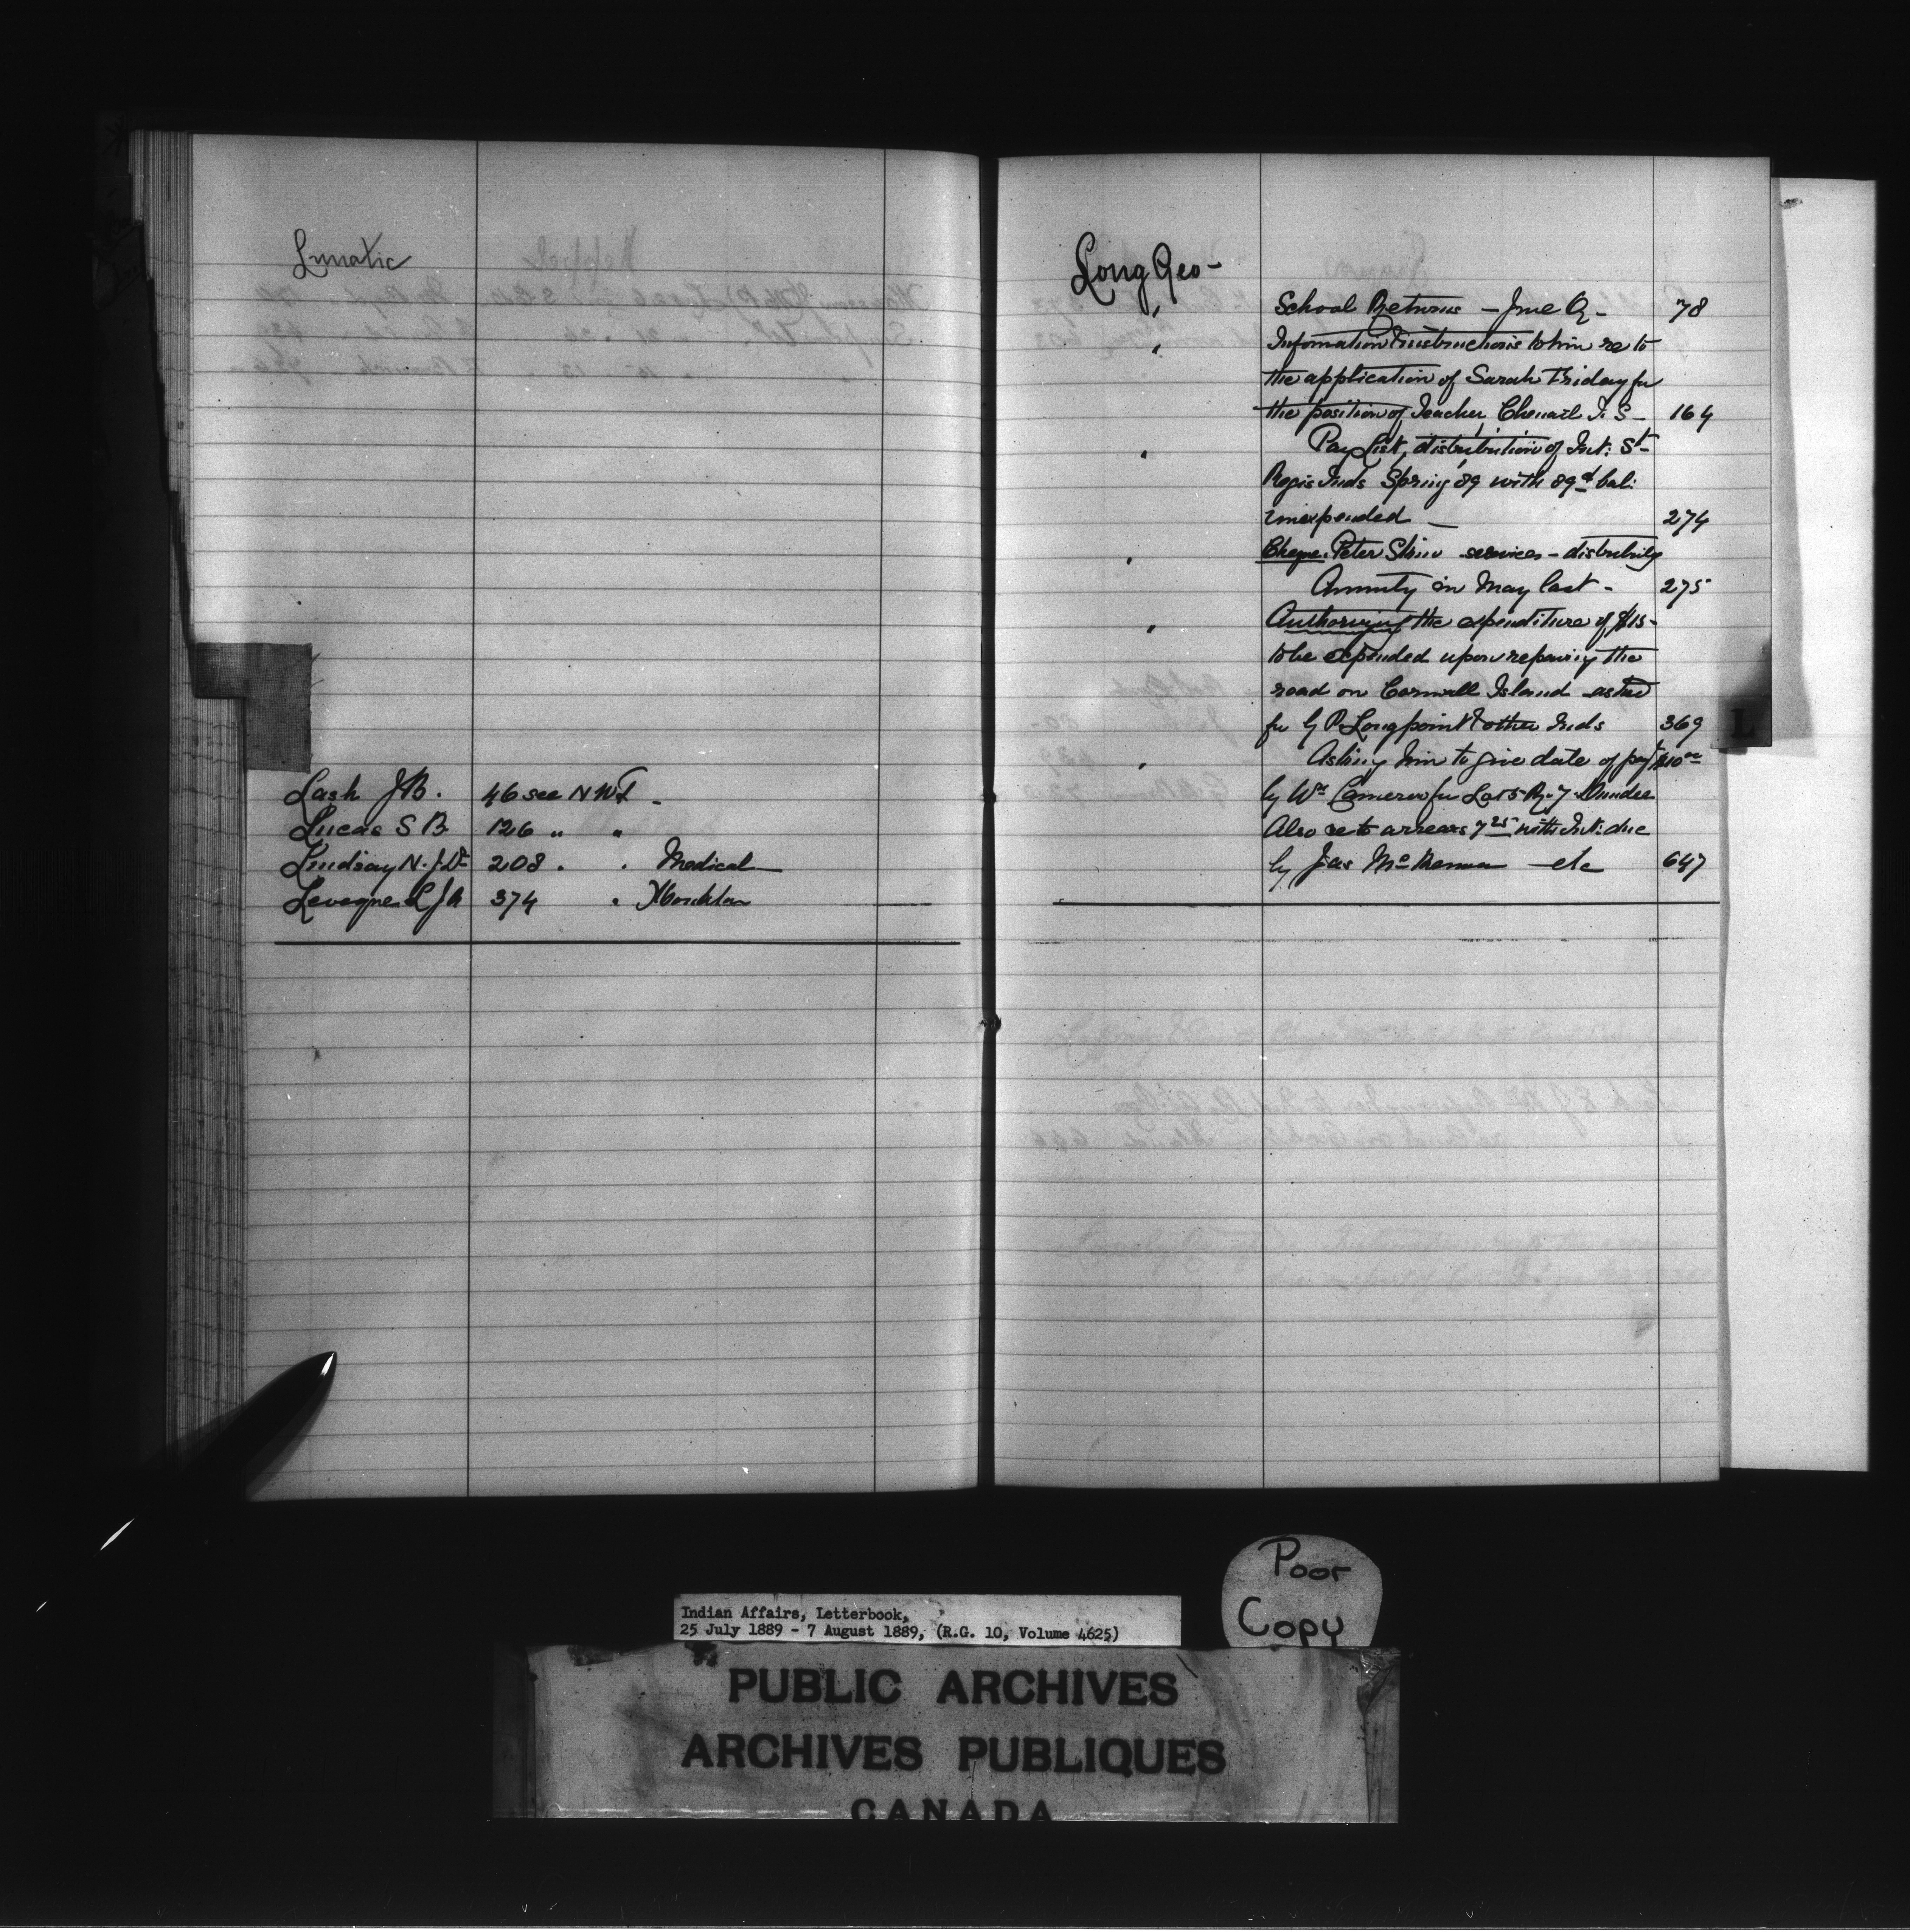 Lunatic
Lash J B. 46 see N W T -
Lucas S B 126 " "
Lindsay N. J. Dr 208 " " Medical
Levesque L J A 374 "
Long Geo -
" School Returns - June Q - 78
" Information & instructions to him re to
the application of Sarah Friday for
the position of Teacher, Chenail I. S - 164
" Pay List, distribution of Int: St
Regis Inds Spring 89 with 89d bal:
unexpended - 274
" Cheque. Peter Stone services - distributing
Annuity in May last - 275
" Authorizing the expenditure of $15 -
to be expended upon repairing the
road on Cornwall Island asked
for by P. Longpoint & other Inds 369
" Asking him to give date of payt $10 00
by Wm Cameron for Lot 5 R. 7 Dundee
Also re to arrears 7 25 with Int: due
by Jas McKenna etc 647
L
Poor
Copy
Indian Affairs, Letterbook,
25 July 1889 - 7 August 1889, (R.G. 10, Volume 4625)
PUBLIC ARCHIVES
ARCHIVES PUBLIQUES
CANADA